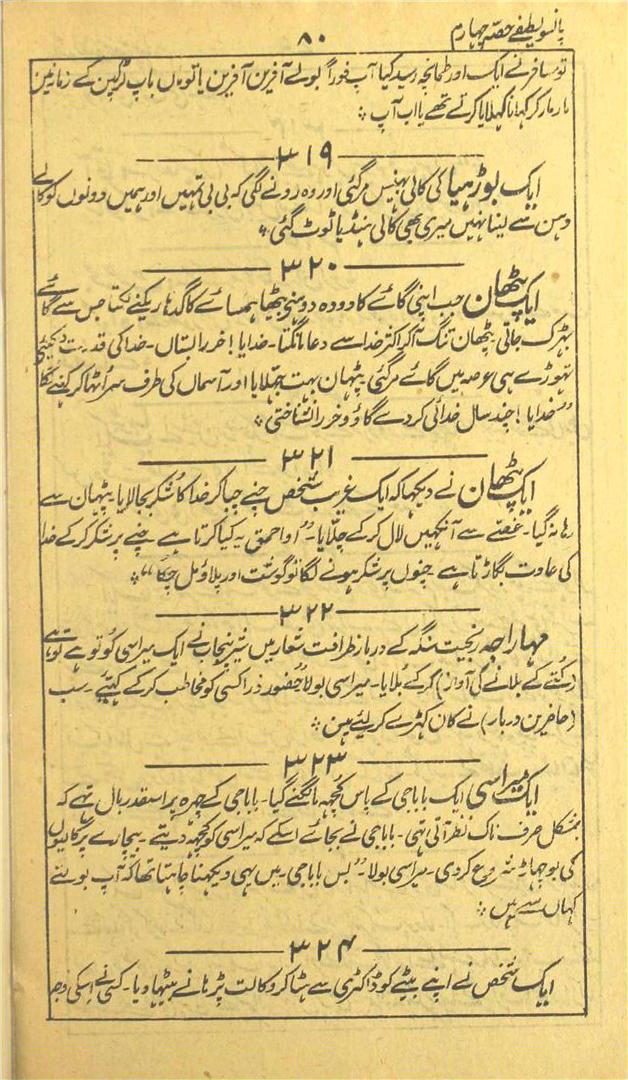 پانسو لطیفے حصہ چہارم
۸۰
تو مسافر نے ایک اور طمانچہ رسید کیا آپ فوراً بولے آفرین آفرین یا تو ماں باپ لڑکپن کے زمانہ میں
مار مار کر کھانا کھلایا کرتے تھے یا اب آپ ؞
۳۱۹
ایک بوڑھیا کی کالی بھینس مر گئی اور وہ رونے لگی کہ بی بی تمہیں اور ہمیں دونوں کو کالے
دھن سے لینا نہیں میری بھی کالی ہنڈیا ٹوٹ گئی ؞
۳۲۰
ایک پٹھان جب اپنی گائے کا دودہ دوہنے بیٹھا ہمسائے کا گدہا رینکنے لگتا جس سے گائے
بھڑک جاتی پٹھان تنگ آ کر اکثر خدا سے دعا مانگتا۔ خدایا! خر را بستاں۔ خدا کی قدرت دیکھئے
تھوڑے ہی عرصہ میں گائے مر گئی پٹھان بہت جھلایا اور آسماں کی طرف سر اٹھا کر کہنے لگا
”خدایا! چند سال خدائی کردے گاؤ و خر را نشناختی ؞
۳۲۱
ایک پٹھان نے دیکھا کہ ایک غریب شخص چنے چبا کر خدا کا شکر بجا لایا پٹھان سے
رہا نہ گیا۔ غصے سے آنکھیں لال کر کے چلّایا۔ ”او احمق یہ کیا کرتا ہے۔ چنے پر شکر کر کے خدا
کی عادت بگاڑتا ہے۔ چنوں پر شکر ہونے لگا تو گوشت اور پلاؤ مل چکا“ ؞
۳۲۲
مہاراجہ رنجیت سنگھ کے دربار ظرافت شعار میں شیر پنجاب نے ایک میراسی کو تو ہے تو ہے
(کتے کے بلانے کی آواز) کر کے بلایا۔ میراسی بولا حضور ذرا کسی کو مخاطب کر کے کہئے۔ سب
(حاضرین دربار) نے کان کھڑے کر لئے ہیں ؞
۳۲۳
ایک میراسی ایک بابا جی کے پاس کچھ مانگنے گیا۔ بابا جی کے چہرہ پر اسقدر بال تھے کہ
بمشکل صرف ناک نظر آتی تھی۔ بابا جی نے بجائے اسکے کہ میراسی کو کچھ دیتے۔ بیچارے پر گالیوں
کی بوچھاڑ شروع کر دی۔ میراسی بولا۔ ”بس بابا جی۔ میں یہی دیکھنا چاہتا تھا کہ آپ بولتے
کہاں سے ہیں ؞
۳۲۴
ایک شخص نے اپنے بیٹے کو ڈاکٹری سے ہٹا کر وکالت پڑھانے بیٹھا دیا۔ کسی نے اسکی وجہ